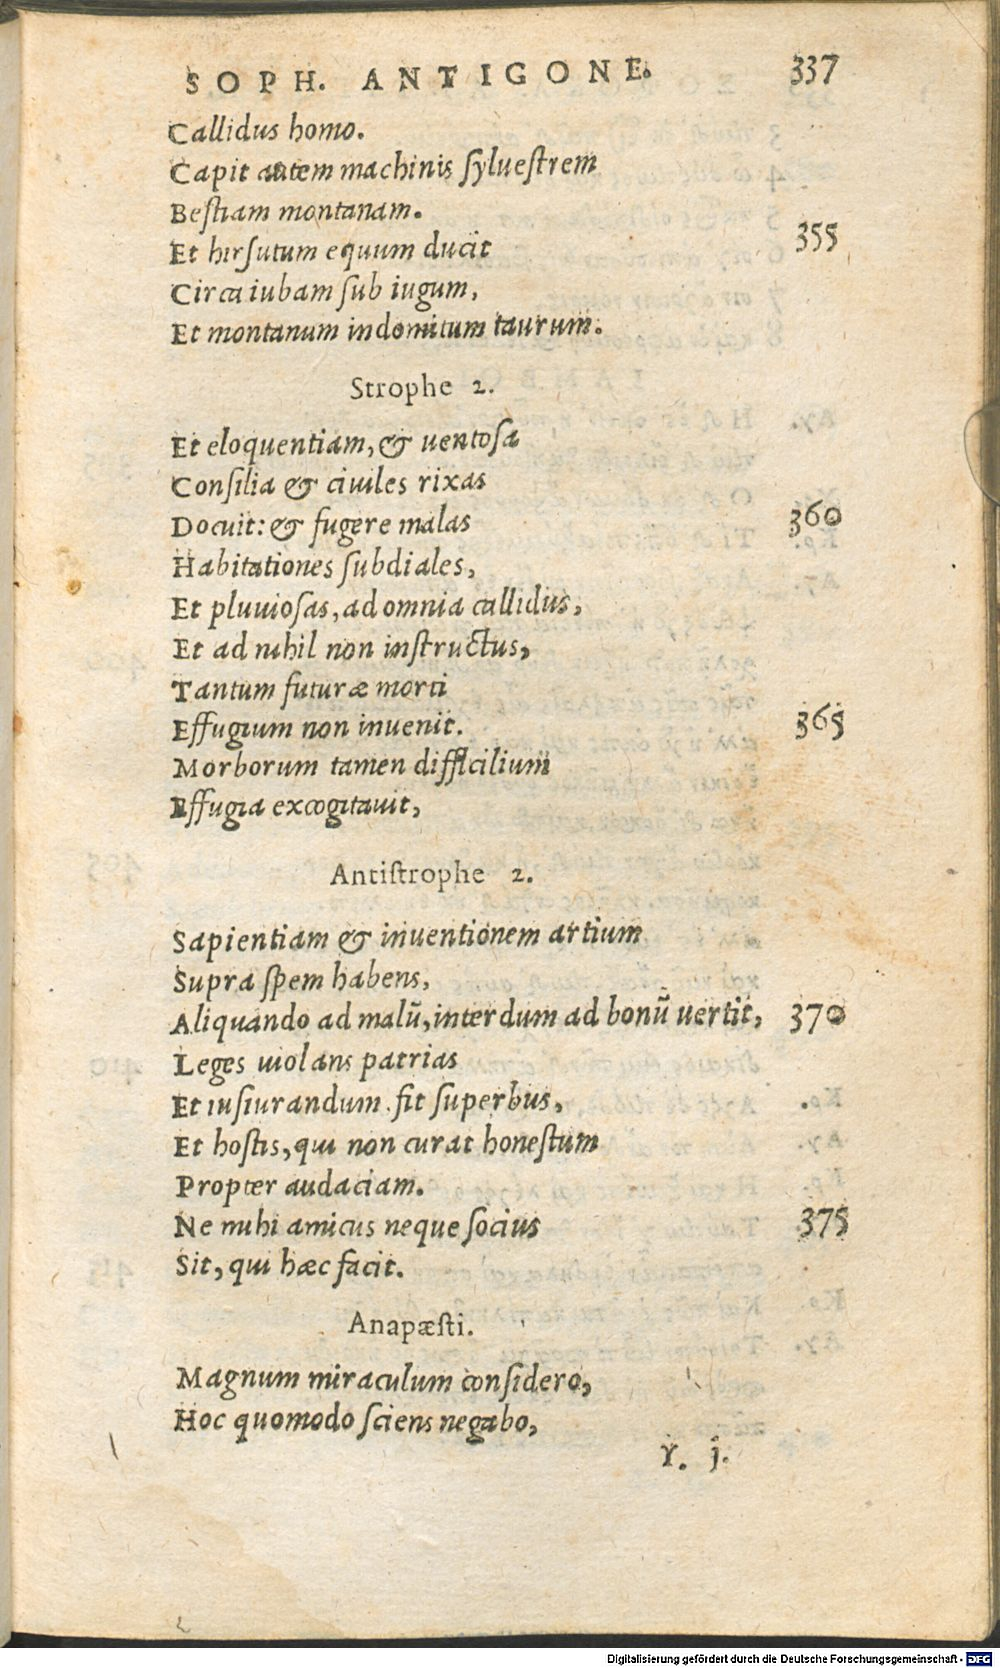 SOPH. ANTIGONE. 337
Callidus homo.
Capit autem machinis ſylueſtrem
Beſtiam montanam.
Et hirſutum equum ducit 355
Circa iubam ſub iugum,
Et montanum indomitum taurum.
Strophe 2.
Et eloquentiam, & uentoſa
Conſilia & ciuiles rixas
Docuit: & fugere malas 360
Habitationes ſubdiales,
Et pluuioſas, ad omnia callidus,
Et ad nihil non inſtructus,
Tantum futuræ morti
Effugium non inuenit. 365
Morborum tamen difficilium
Effugia excogitauit,
Antiſtrophe 2.
Sapientiam & inuentionem artium
Supra ſpem habens,
Aliquando ad malũ, interdum ad bonũ uertit, 370
Leges uiolans patrias
Et iuſiurandum. fit ſuperbus,
Et hoſtis, qui non curat honeſtum
Propter audaciam.
Ne mihi amicus neque ſocius 375
Sit, qui hæc facit.
Anapæſti.
Magnum miraculum conſidero,
Hoc quomodo ſciens negabo,
Y. j.
Digitalisierung gefördert durch die Deutsche Forschungsgemeinschaft - DFG